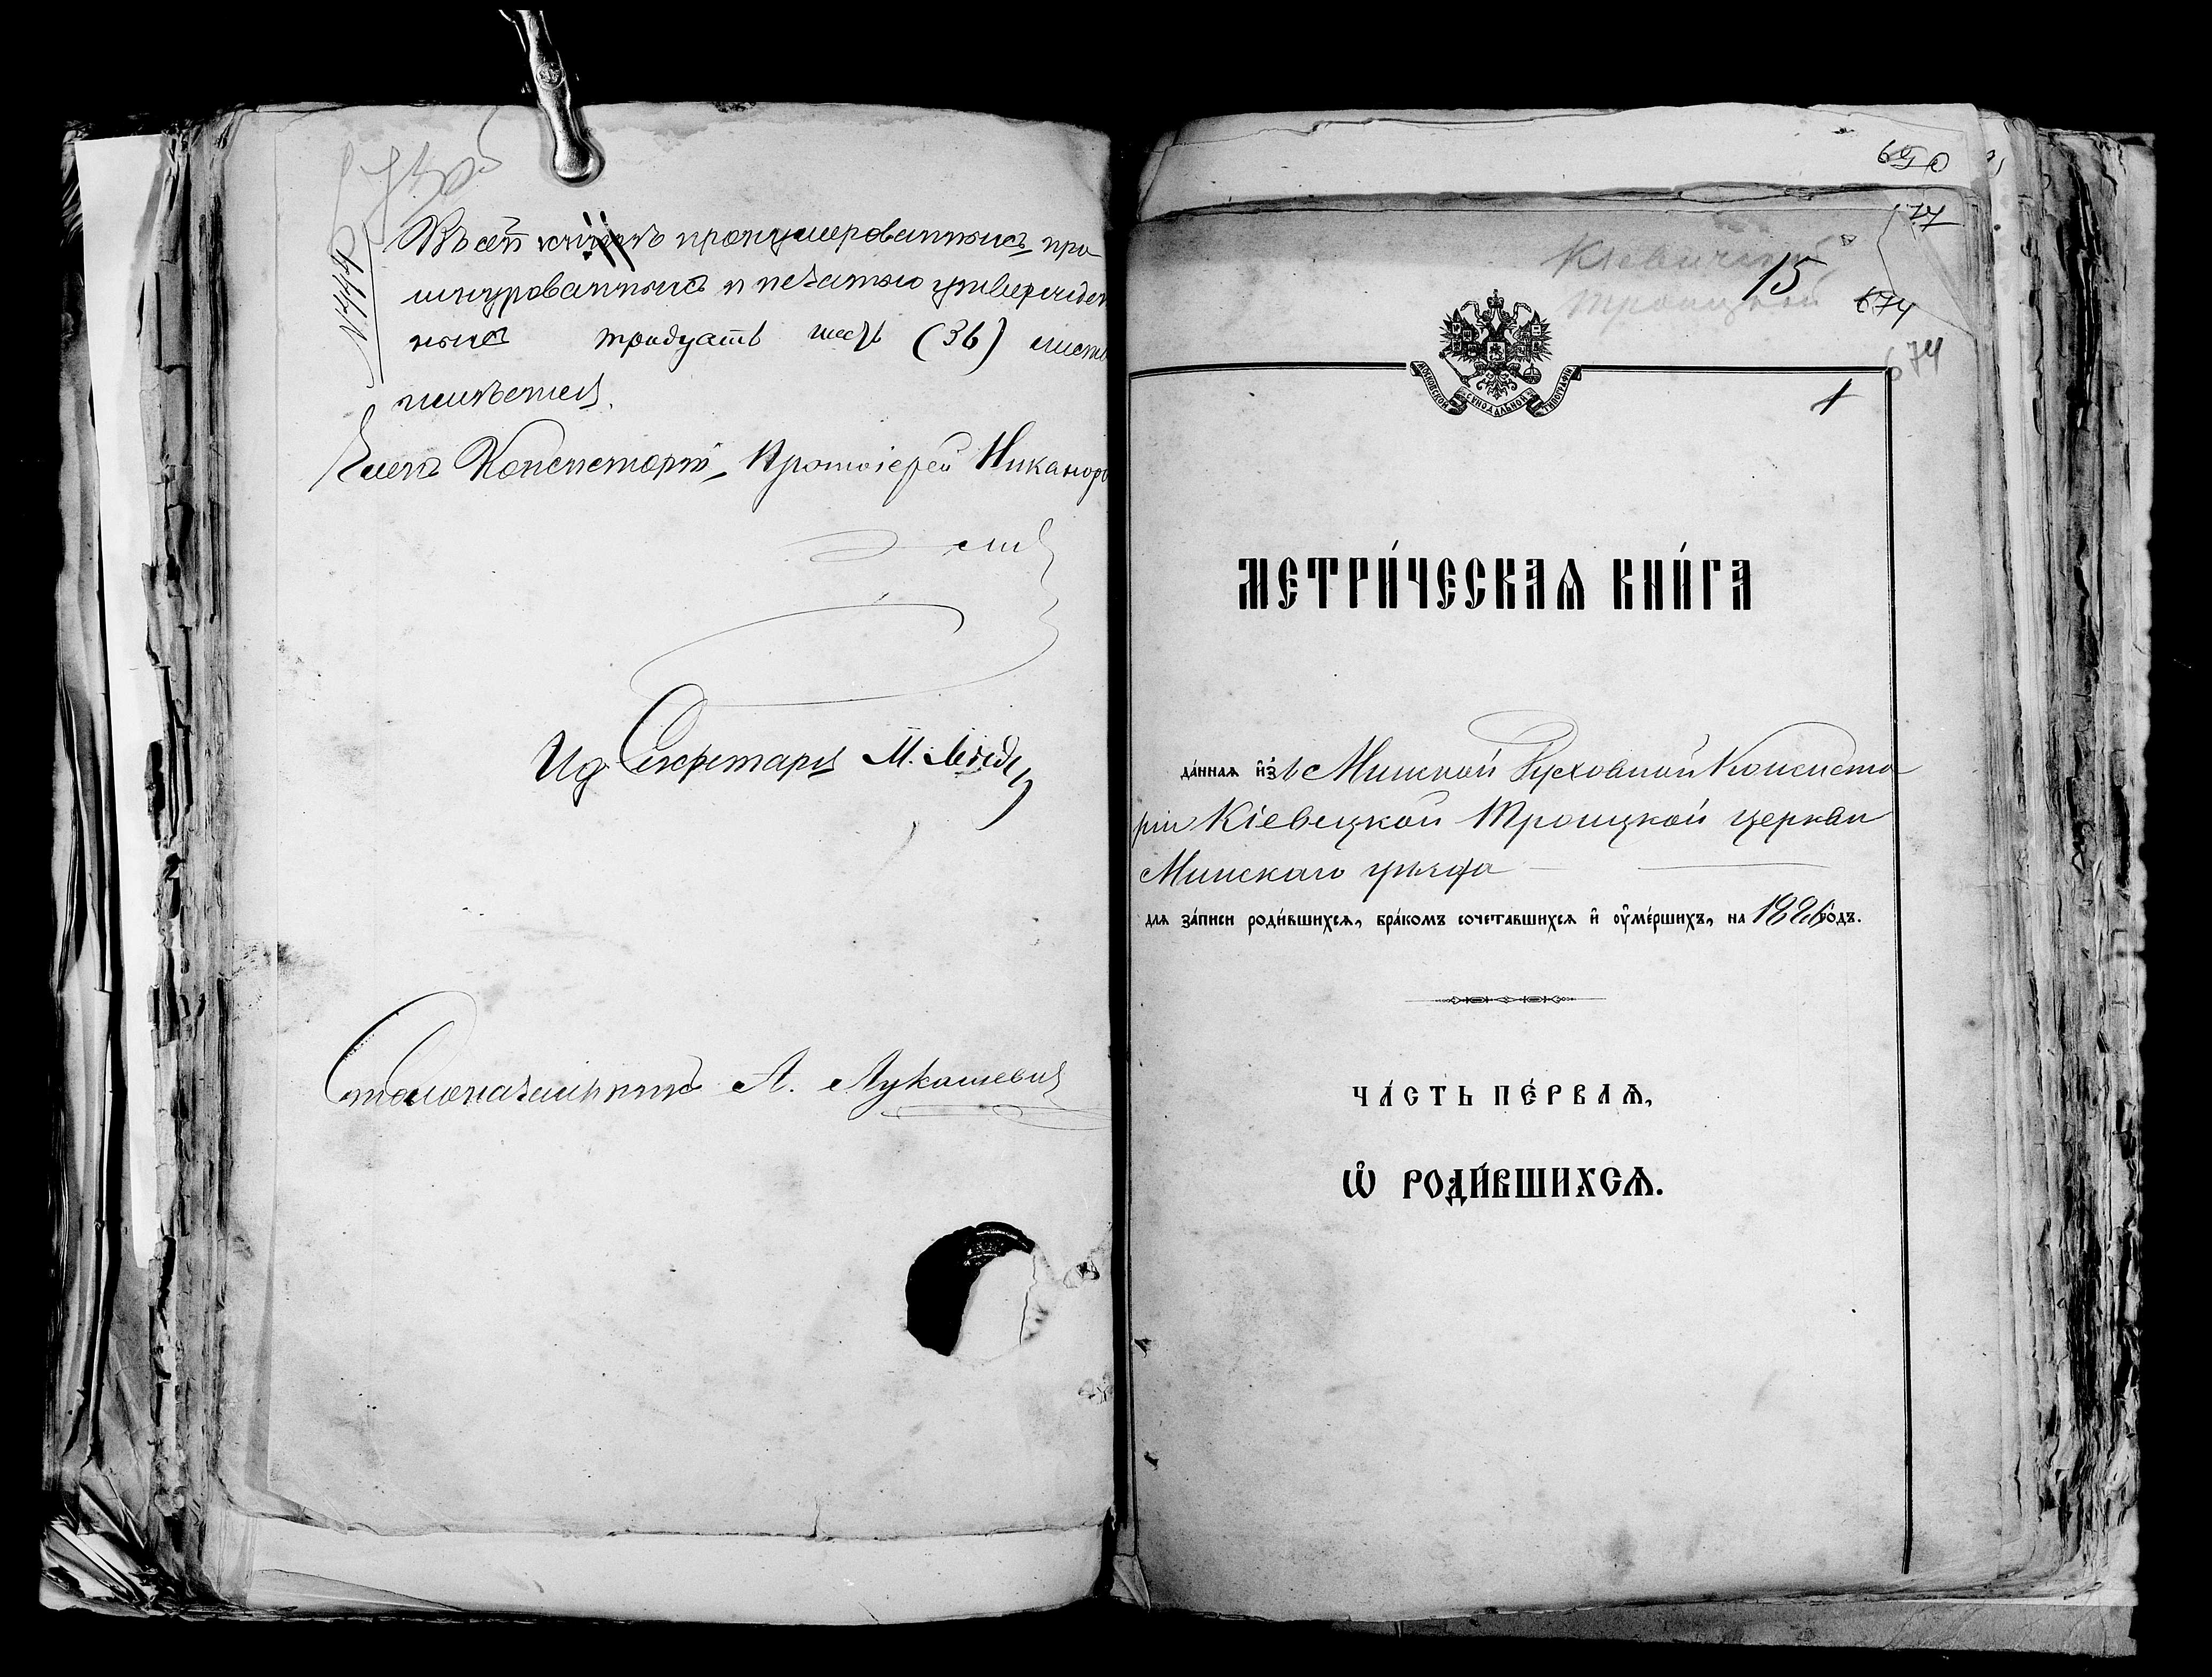 № 444
Въ сей книгѣ пронумерованныхъ, про
шнурованныхъ и печатью утвержден
ныхъ тридцать шесть (36) листовъ
имѣется.
Членъ Консисторіи, Протоіерей Никаноръ
Ид Секретаря М.
Столоначальникъ А. Лукашевич
690
15
Кіевицкой
Троицкой
674
674
МОСКОВСКОЙ СѴНОДАЛЬНОЙ ТИПОГРАФІИ
1
МЕТРИ́ЧЕСКАѦ КНИ́ГА
да́ннаѧ и҆зъ Минской Духовной Консисто
ріи Кіевицкой Троицкой церкви
Минскаго уѣзда
длѧ за́писи роди́вшихсѧ, бра́комъ сочета́вшихсѧ и҆ оу҆ме́ршихъ, на 1886 годъ.
ЧА́СТЬ ПЕ́РВАѦ,
Ѡ҆ РОДИ́ВШИХСѦ.